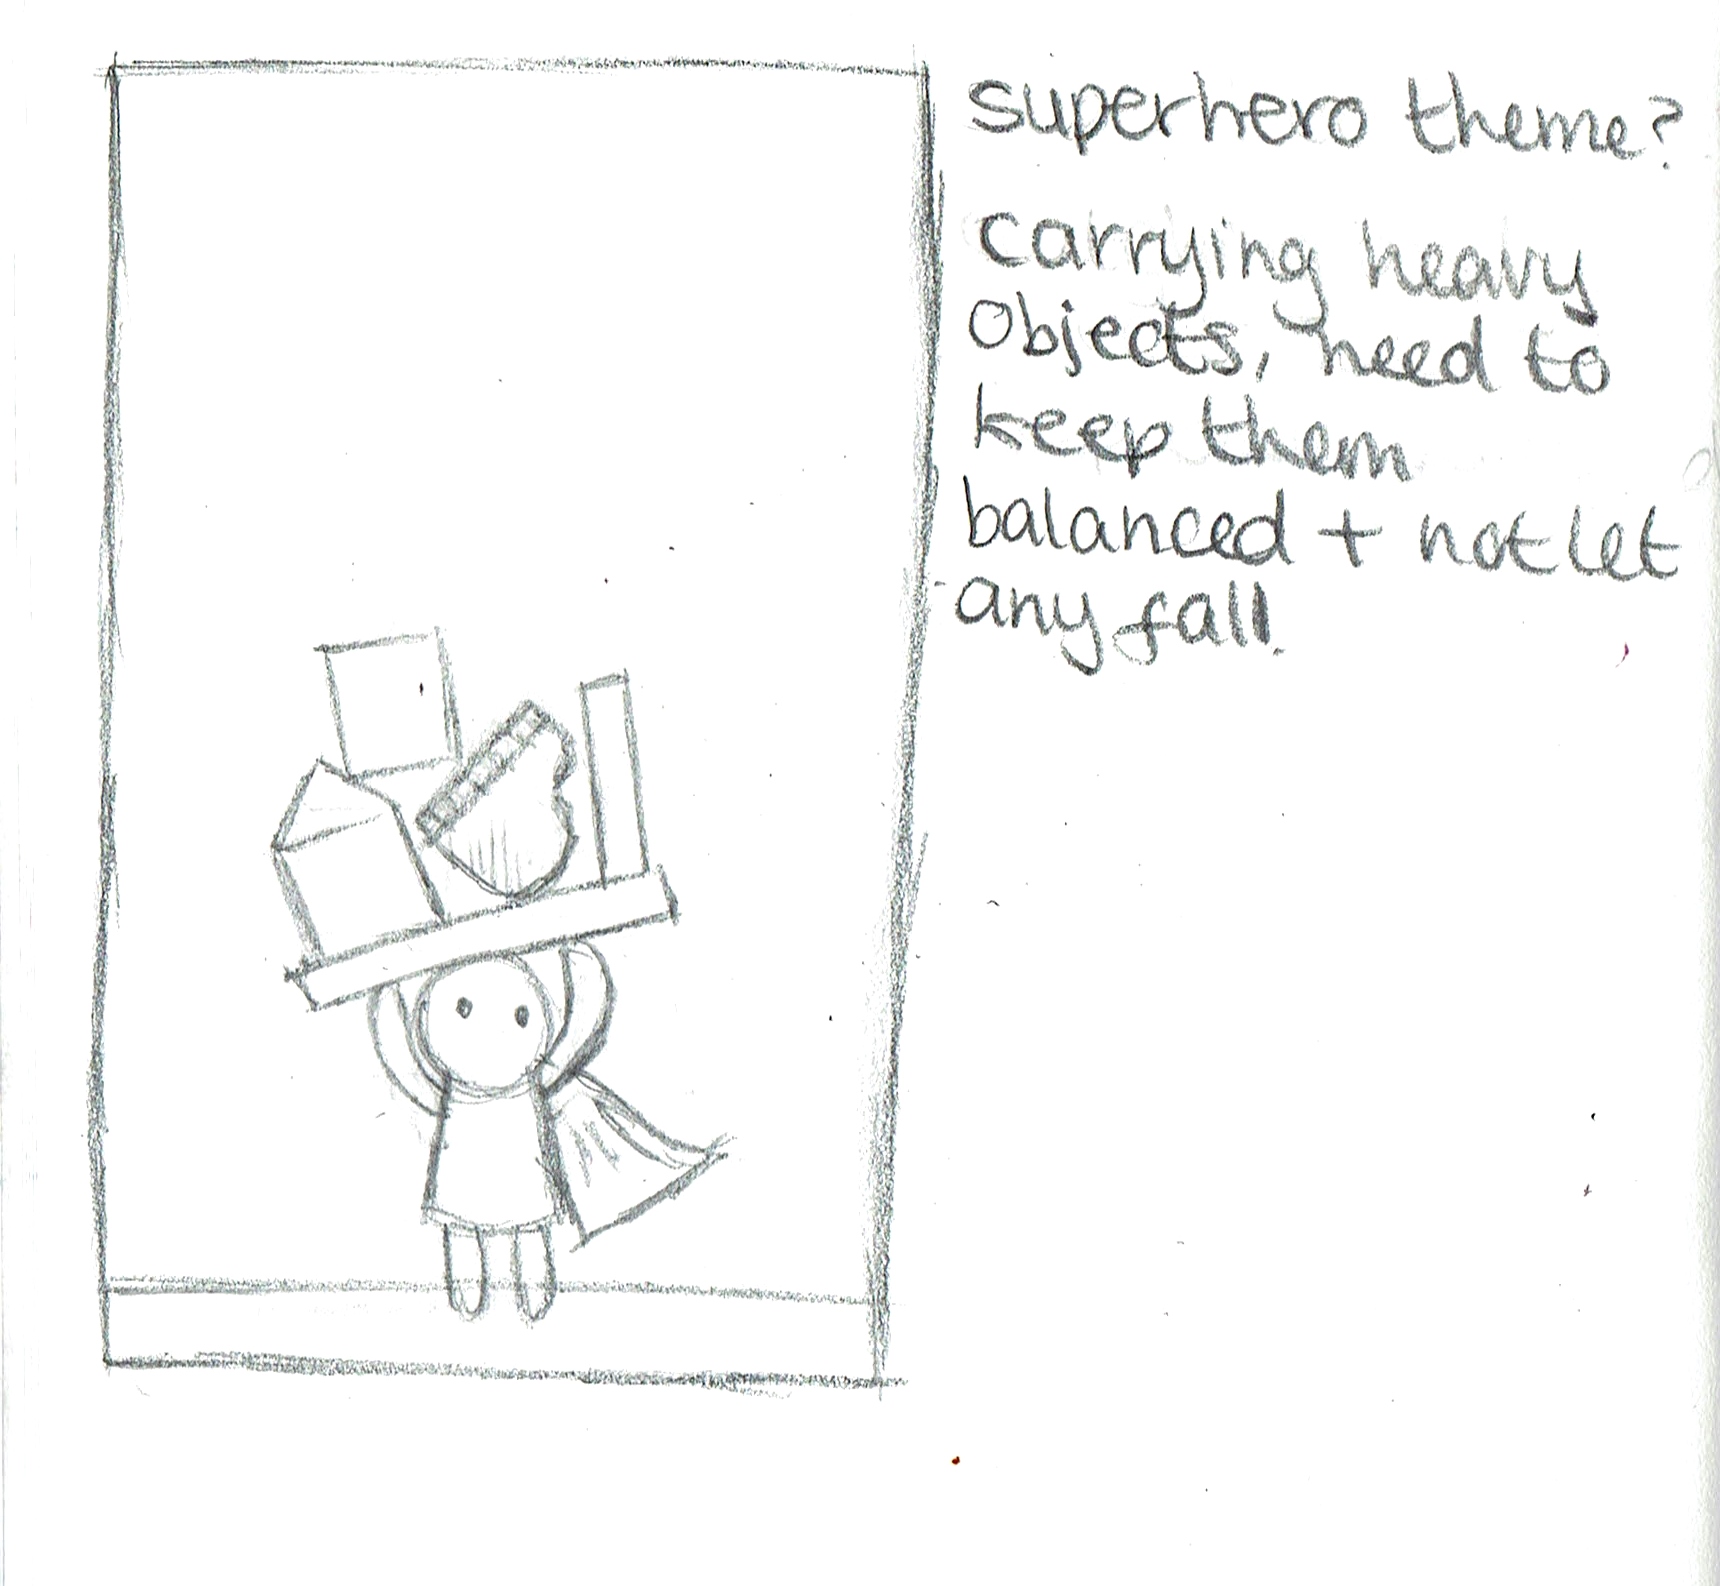 superhero theme?
carrying heavy
objects, need to
keep them
balanced + not let
any fall.